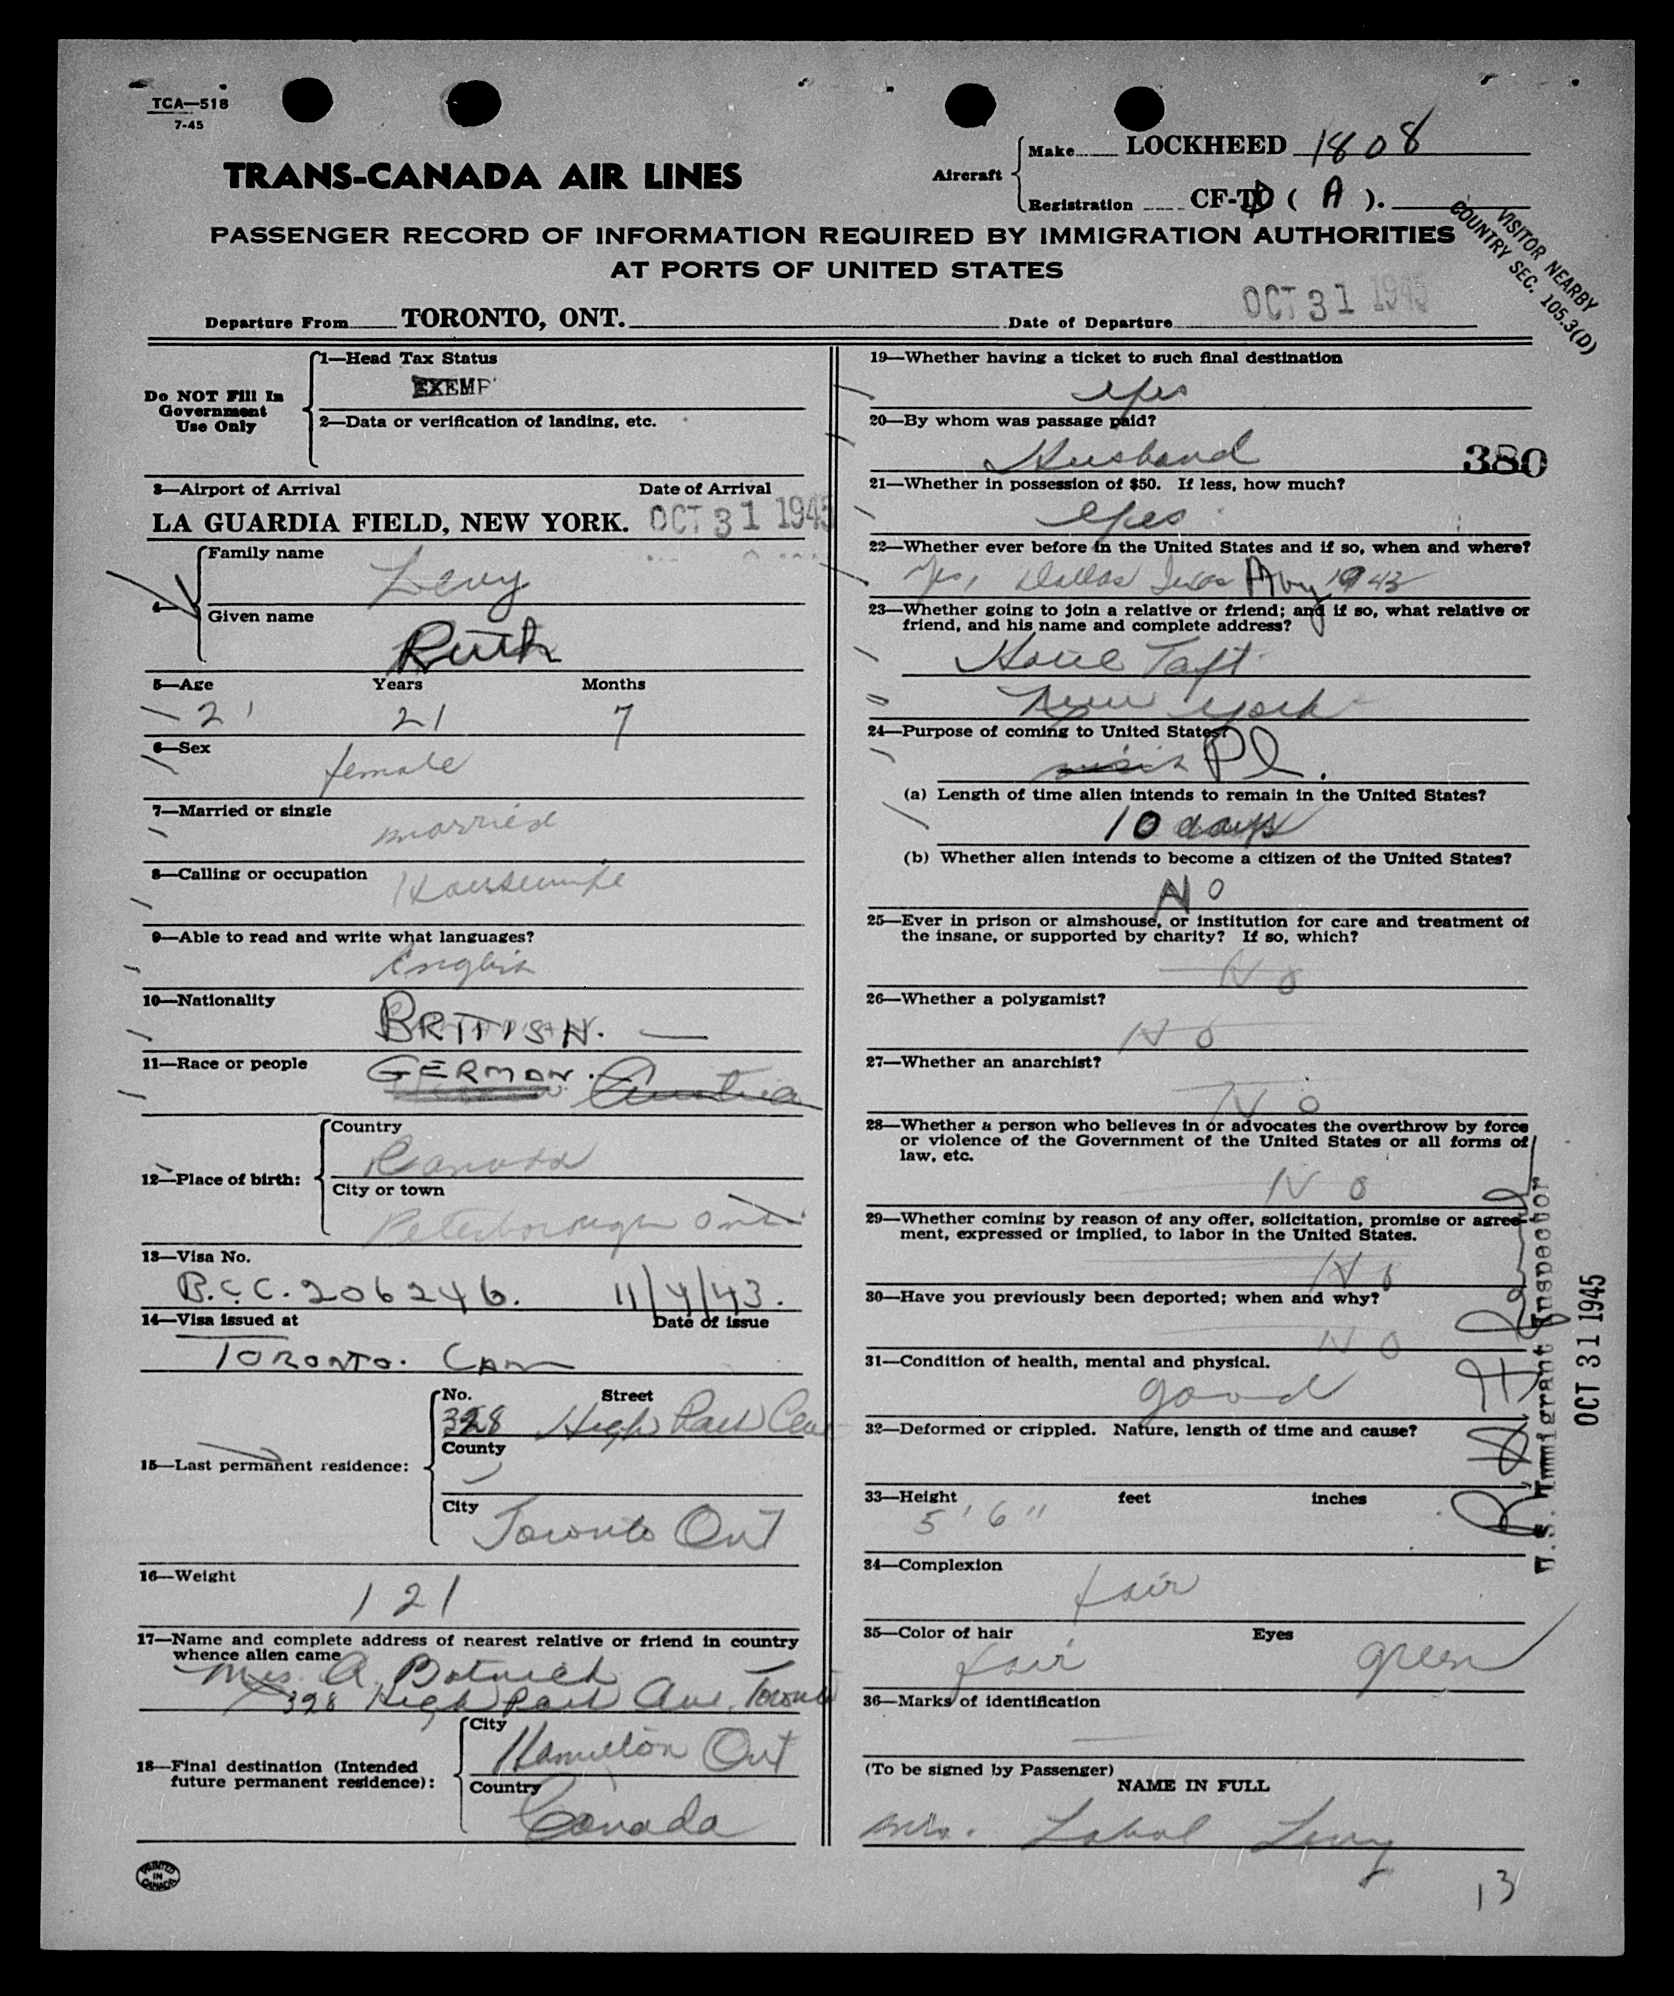 TCA—518
7-45
TRANS-CANADA AIR LINES
Aircraft
Make LOCKHEED 1808
Registration CF-TD ( A ).
PASSENGER RECORD OF INFORMATION REQUIRED BY IMMIGRATION AUTHORITIES
AT PORTS OF UNITED STATES
VISITOR NEARBY
COUNTRY SEC. 105.3(D)
Departure From TORONTO, ONT. Date of Departure OCT 31 1945
Do NOT Fill In
Government
Use Only
1—Head Tax Status
EXEMP
2—Data or verification of landing, etc.
3—Airport of Arrival Date of Arrival
LA GUARDIA FIELD, NEW YORK. OCT 31 1945
4—
Family name
Levy
Given name
Ruth
5—Age Years Months
21 21 7
6—Sex
female
7—Married or single
married
8—Calling or occupation
Housewife
9—Able to read and write what languages?
English
10—Nationality
BRITISH. —
11—Race or people
GERMAN. Austria
12—Place of birth:
Country
Canada
City or town
Peterborough Ont.
13—Visa No.
B.C.C. 206246. 11/4/43.
14—Visa issued at Date of issue
TORONTO. CAN
15—Last permanent residence:
No. Street
328 High Park
County
City
Toronto Ont
16—Weight
121
17—Name and complete address of nearest relative or friend in country
whence alien came
Mrs. A. Botnick
328 High Park Ave. Toronto
18—Final destination (Intended
future permanent residence):
City
Hamilton Ont
Country
Canada
PRINTED
IN
CANADA
19—Whether having a ticket to such final destination
yes
20—By whom was passage paid?
Husband
380
21—Whether in possession of $50. If less, how much?
yes
22—Whether ever before in the United States and if so, when and where?
Yes, Dallas Texas 1943
23—Whether going to join a relative or friend; and if so, what relative or
friend, and his name and complete address?
Hotel Taft
New York
24—Purpose of coming to United States?
visit Pl.
(a) Length of time alien intends to remain in the United States?
10 days
(b) Whether alien intends to become a citizen of the United States?
NO
25—Ever in prison or almshouse, or institution for care and treatment of
the insane, or supported by charity? If so, which?
No
26—Whether a polygamist?
No
27—Whether an anarchist?
No
28—Whether a person who believes in or advocates the overthrow by force
or violence of the Government of the United States or all forms of
law, etc.
No
29—Whether coming by reason of any offer, solicitation, promise or agree-
ment, expressed or implied, to labor in the United States.
No
30—Have you previously been deported; when and why?
No
31—Condition of health, mental and physical.
good
32—Deformed or crippled. Nature, length of time and cause?
33—Height feet inches
5' 6"
34—Complexion
fair
35—Color of hair Eyes
fair green
36—Marks of identification
—
(To be signed by Passenger)
NAME IN FULL
Mrs. Levy
13
U.S. Immigrant Inspector
OCT 31 1945